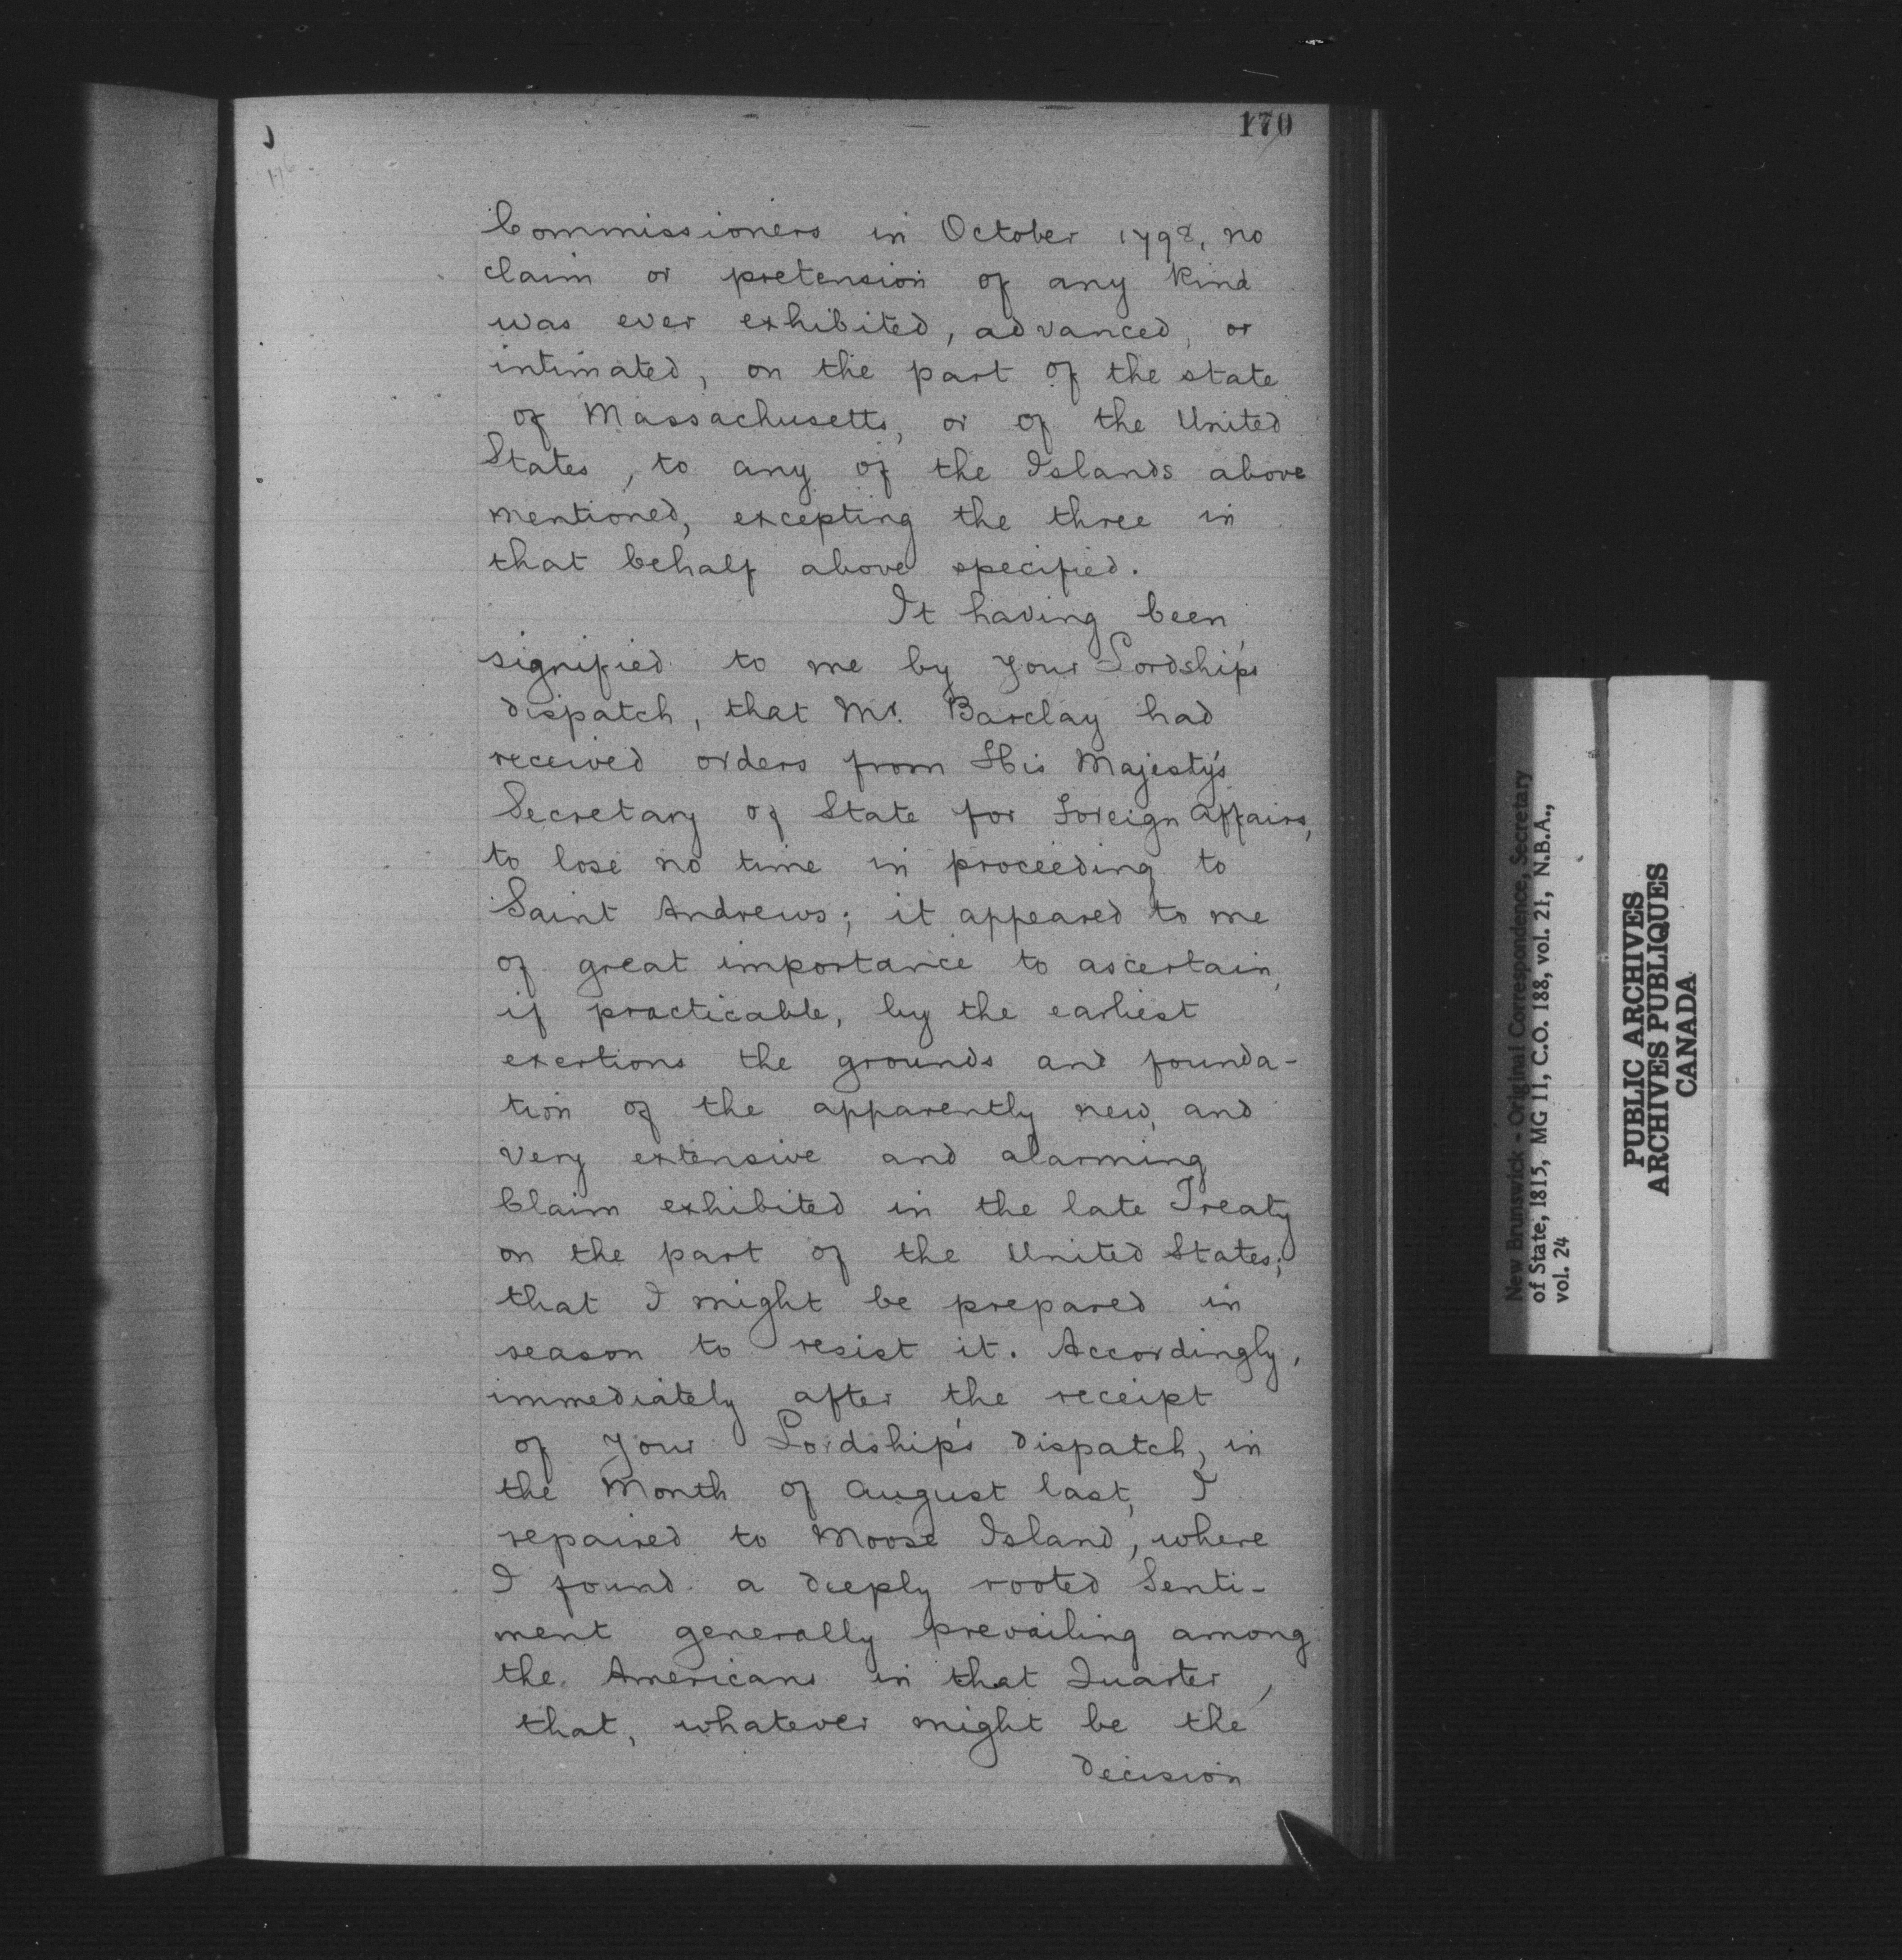 170
Commissioners in October 1798, no
claim or pretension of any kind
was ever exhibited, advanced, or
intimated, on the part of the state
of Massachusetts, or of the United
States, to any of the Islands above
mentioned, excepting the three in
that behalf above specified.
It having been,
signified to me by your Lordship's
dispatch, that Mr. Barclay had
received orders from His Majesty's
Secretary of State for Foreign Affairs,
to lose no time in proceeding to
Saint Andrews; it appeared to me
of great importance to ascertain,
if practicable, by the earliest
exertions the grounds and founda-
tion of the apparently new, and
very extensive and alarming
Claim exhibited in the late Treaty
on the part of the United States;
that I might be prepared in
season to resist it. Accordingly,
immediately after the receipt
of your Lordship's dispatch, in
the Month of August last, I
repaired to Moose Island, where
I found a deeply rooted Senti-
ment generally prevailing among
the Americans in that Quarter,
that, whatever might be the
decision
New Brunswick - Original Correspondence, Secretary
of State, 1815, MG 11, C.O. 188, vol. 21, N.B.A.,
vol. 24
PUBLIC ARCHIVES
ARCHIVES PUBLIQUES
CANADA